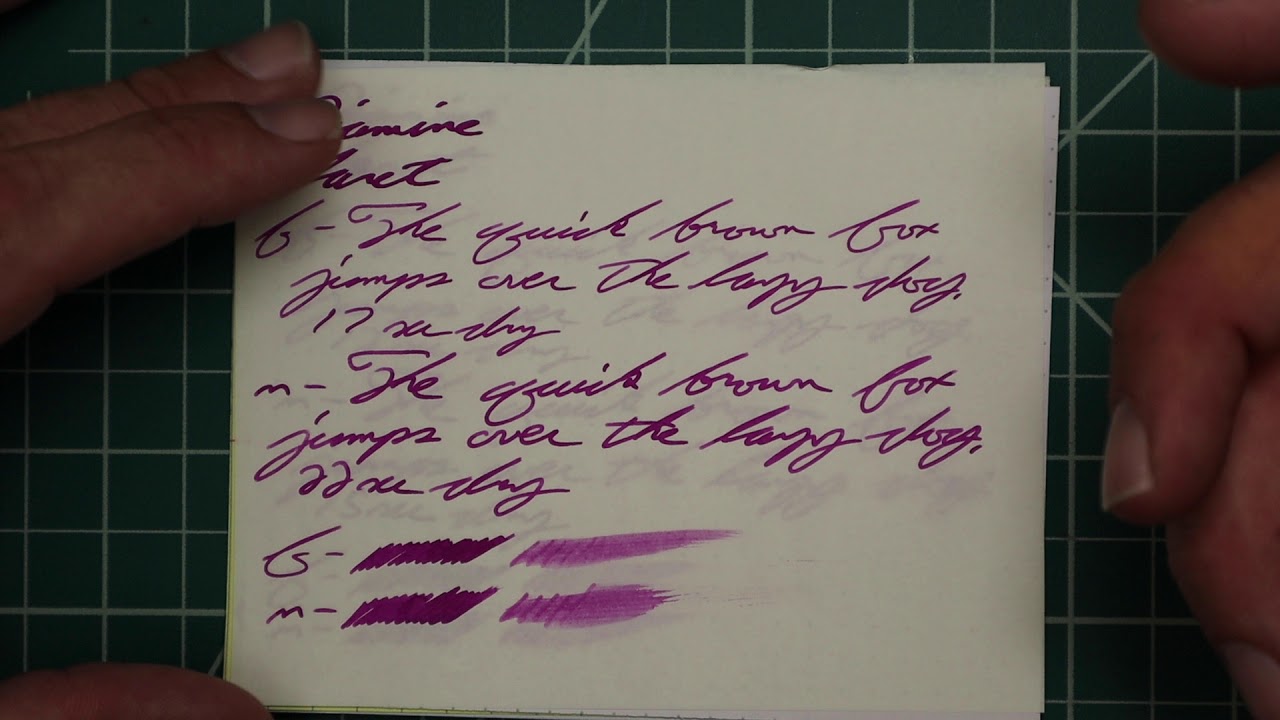 iamine
laret
f - The quick brown fox
jumps over the lazy dog.
17 sec dry
m - The quick brown fox
jumps over the lazy dog.
22 sec dry
f -
m -